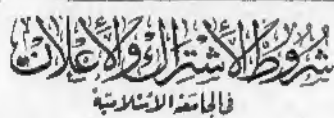 شُرُوطُ الْاِشْتِرَاكِ وَالْاِعْلَانِ
في الجامعة الاسلامية